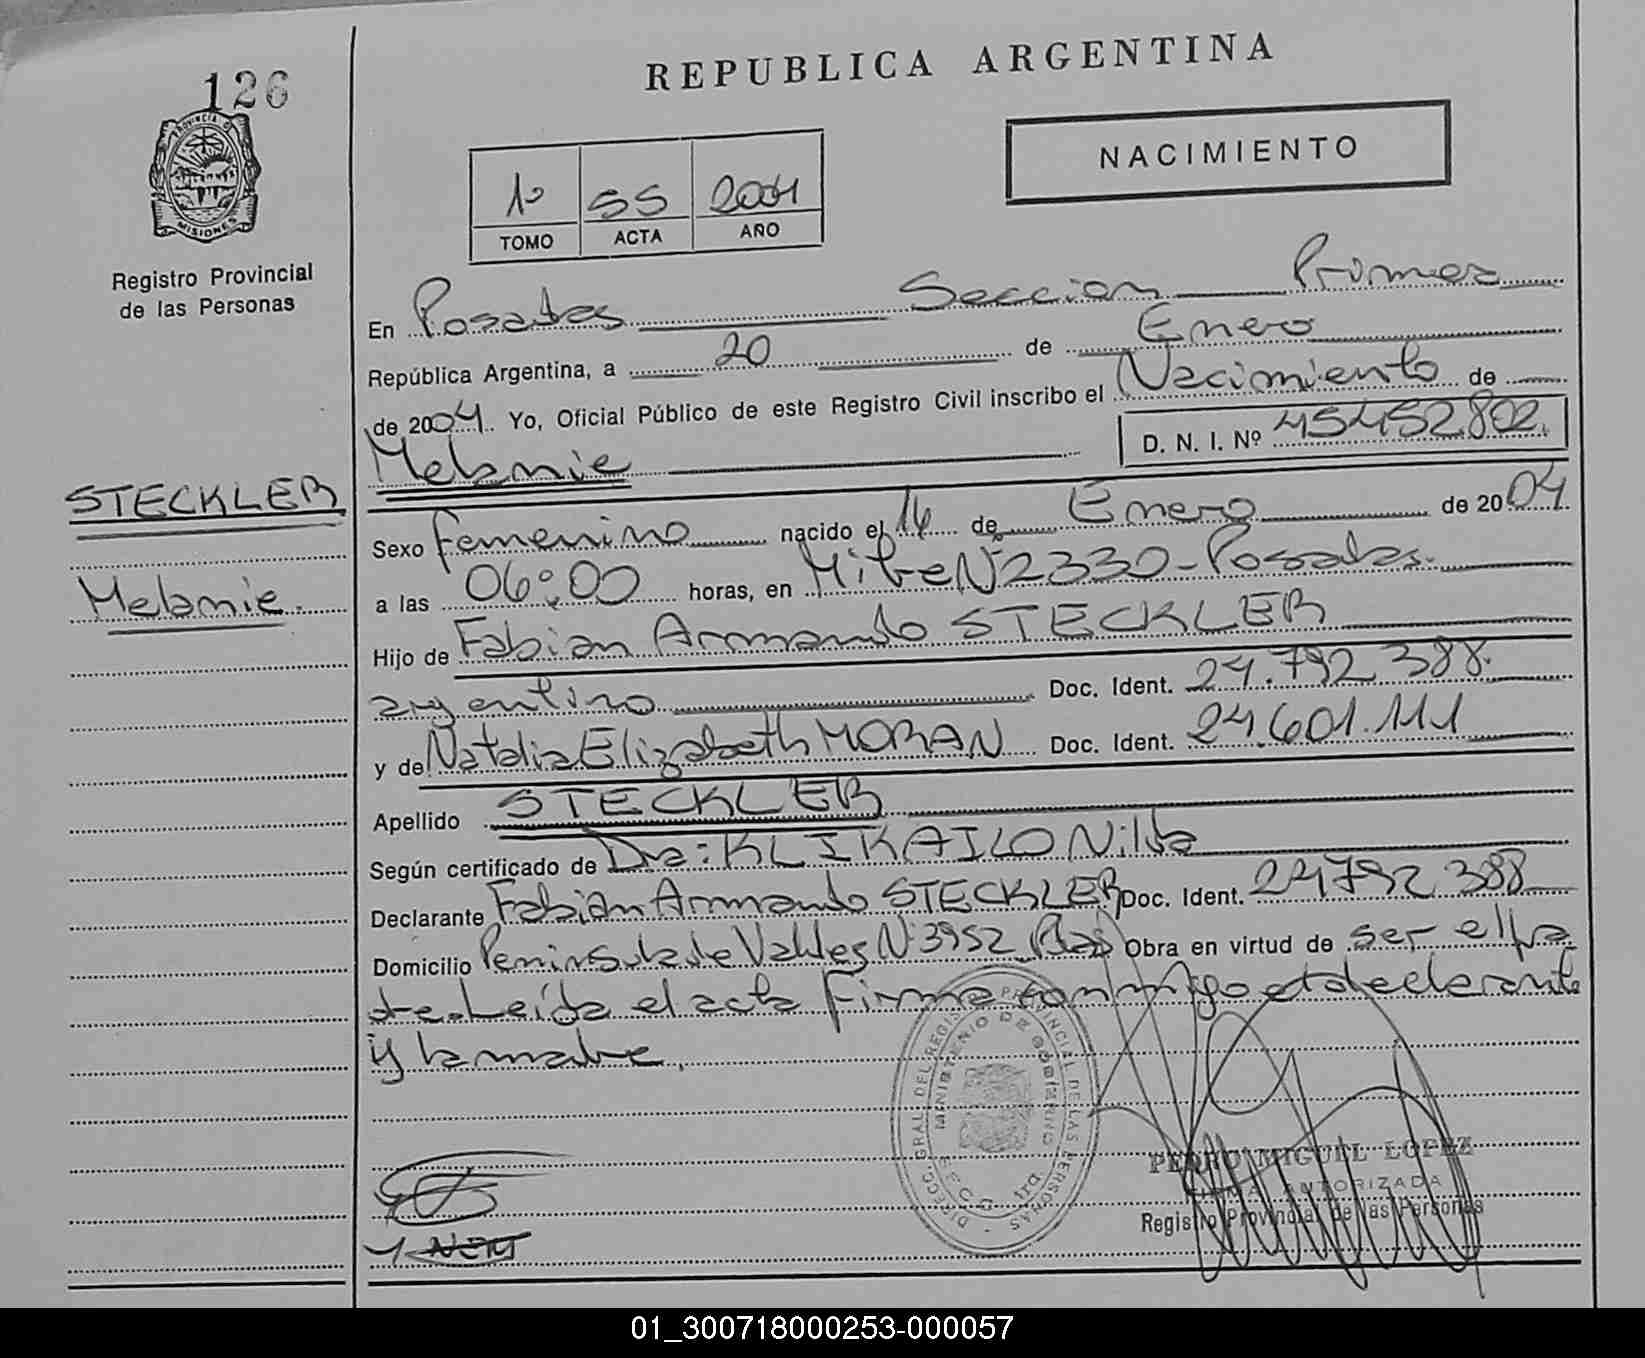 126
REPUBLICA ARGENTINA
PROVINCIA D
MISIONES
Registro Provincial
de las Personas
NACIMIENTO
1º 55 2004
TOMO ACTA AÑO
En Posadas Seccion Primera
República Argentina, a 20 de Enero
de 2004. Yo, Oficial Público de este Registro Civil inscribo el Nacimiento de
Melanie D. N. I. Nº 45452802.
STECKLER
Melanie.
Sexo femenino nacido el 14 de Enero de 2004
a las 06:00 horas, en Mitre Nº 2330 - Posadas.
Hijo de Fabian Armando STECKLER
argentino Doc. Ident. 24.792.388.
y de Natalia Elizabeth MORAN Doc. Ident. 24.601.111
Apellido STECKLER
Según certificado de Dra: KLIKAILO Nilda
Declarante Fabián Armando STECKLER Doc. Ident. 24792388
Domicilio Peninsula de Valdes Nº 3952 Pdas Obra en virtud de ser el pa
dre. Leída el acta Firma conmigo el declarante
y la madre.
DIRECC. GRAL. DEL REGISTRO PROVINCIAL DE LAS PERSONAS
MINISTERIO DE GOBIERNO
SECC. 1ra.
PEDRO MIGUEL LOPEZ
FIRMA AUTORIZADA
Registro Provincial de las Personas
01_300718000253-000057